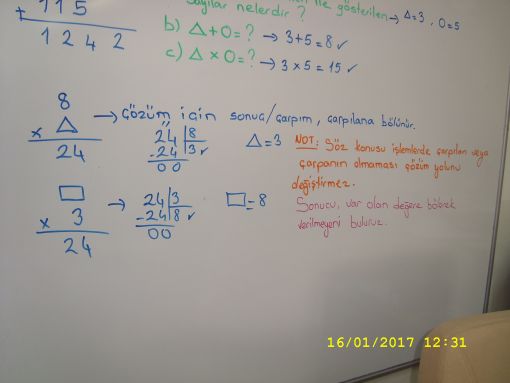 ile gösterilen → △=3, O=5
sayılar nelerdir?
+ 115
1242
b) △+O=? → 3+5=8 ✓
c) △×O=? → 3×5=15 ✓
8
× △
24
→ çözüm için sonuç/çarpım, çarpılana bölünür.
24 | 8
-24 | 3 ✓
00
△=3
NOT: Söz konusu işlemlerde çarpılan veya
çarpanın olmaması çözüm yolunu
değiştirmez.
□
× 3
24
→ 24 | 3
-24 | 8 ✓
00
□=8
Sonucu, var olan değere bölerek
verilmeyeni buluruz.
16/01/2017 12:31